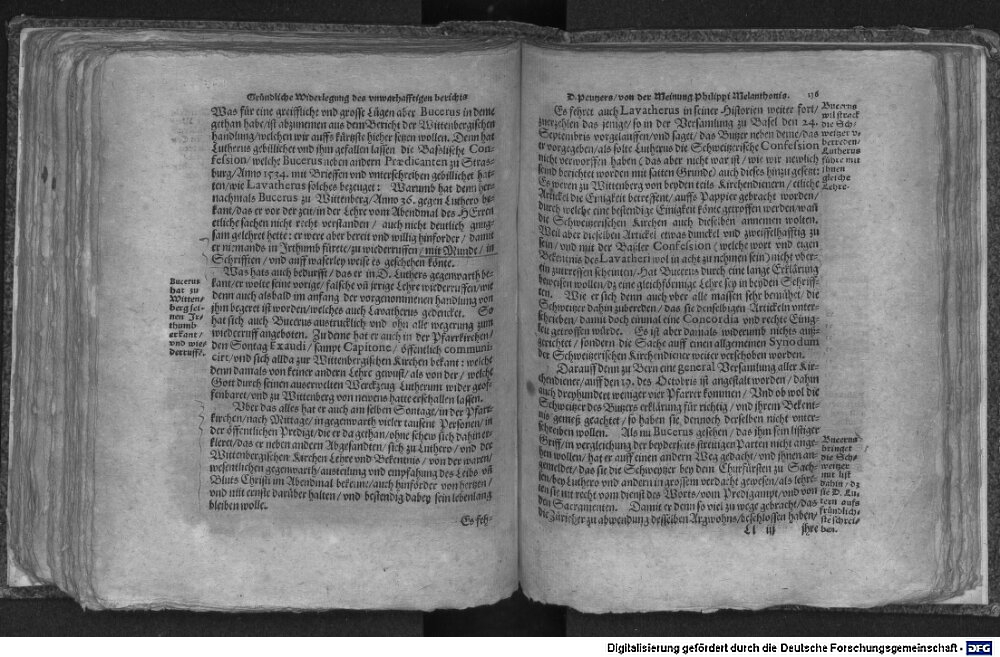 Gründliche Widerlegung des vnwarhafftigen berichts
Was für eine greiffliche vnd grosse Lügen aber Bucerus in deme
gethan habe/ ist abzunemen aus dem Bericht der Wittenbergischen
handlung/ welchen wir auffs kürtzste hieher setzen wollen. Denn hat
Lutherus gebillichet vnd ihm gefallen lassen die Baslische Con-
fession/ welche Bucerus neben andern Prædicanten zu Stras-
burg/ Anno 1534. mit Brieffen vnd vnterschreiben gebillichet hat-
ten/ wie Lavatherus solches bezeuget: Warumb hat denn her-
nachmals Bucerus zu Wittenberg/ Anno 36. gegen Luthero be-
kant/ das er vor der zeit/ in der Lehre vom Abendmal des HErren
etliche sachen nicht recht verstanden/ auch nicht deutlich gnug-
san gelehret hette: er were aber bereit vnd willig hinforder/ damit
er niemands in Irthumb fürete/ zu wiederruffen/ mit Munde/ in
Schrifften/ vnd auff waserley weise es geschehen könte.
Was hats auch bedurfft/ das er in D. Luthers gegenwarth be-
kant/ er wolte seine vorige/ falsche vñ jrrige Lehre wiederruffen/ wie
denn auch alsbald im anfang der vorgenommenen handlung von
jhm begeret ist worden/ welches auch Lavatherus gedencket. So
hat sich auch Bucerus austrucklich vnd ohn alle wegerung zum
wiederruff angeboten. Zu deme hat er auch in der Pfarrkirchen/
den Sontag Exaudi/ sampt Capitone/ öffentlich communi-
cirt/ vnd sich allda zur Wittenbergischen Kirchen bekant: welche
denn damals von keiner andern Lehre gewust/ als von der/ welche
Gott durch seinen auserwelten Werckzeug Lutherum wider geof-
fenbaret/ vnd zu Wittenberg von newens hatte erschallen lassen.
Vber das alles hat er auch am selben Sontage/ in der Pfarr-
kirchen/ nach Mittage/ in gegenwarth vieler tausent Personen/ in
der öffentlichen Predig/ die er da gethan/ ohne schew sich dahin er-
kleret/ das er neben andern Abgesandten/ sich zu Luthero/ vnd der
Wittenbergischen Kirchen Lehre vnd Bekentnis/ von der waren/
wesentlichen gegenwarth/ austeilung vnd empfahung des Leibs vñ
Bluts Christi im Abendmal bekenne/ auch hinförder von hertzen/
vnd mit ernste darüber halten/ vnd bestendig dabey sein lebenlang
bleiben wolle.
Es feh-
Bucerus
hat zu
Witten-
berg sei-
nen Jr-
thumb
erkant/
vnd wie-
derruff.
D. Peutzers/ von der Meinung Philippi Melanthonis. 176
Es fehret auch Lavatherus in seiner Historien weiter fort/
zuerzehlen das jenige/ so in der Versamlung zu Basel den 24.
Septembris vorgelauffen/ vnd saget/ das Butzer neben deme/ das
er vorgegeben/ als solte Lutherus die Schweitzerische Confession
nicht verworffen haben (das aber nicht war ist/ wie wir newlich
seind berichtet worden mit satten Grunde) auch dieses hinzu gesetzt:
Es weren zu Wittenberg von beyden teils Kirchendienern/ etliche
Artickel die Einigkeit betreffent/ auffs Pappier gebracht worden/
durch welche eine bestendige Einigkeit könte getroffen werden/ wañ
die Schweitzerischen Kirchen auch dieselben annemen wolten.
Weil aber dieselben Artickel etwas dunckel vnd zweiffelhafftig zu
sein/ vnd mit der Basler Confession (welche wort vnd eigen
Bekentnis des Lavatheri wol in acht zu nehmen sein) nicht vber-
ein zutreffen scheinten/ Hat Bucerus durch eine lange Erklärung
beweisen wollen/ dz eine gleichförmige Lehre sey in beyden Schriff-
ten. Wie er sich denn auch vber alle massen sehr bemühet/ die
Schweitzer dahin zubereden/ das sie denselbigen Artickeln vnter-
schrieben/ damit doch einmal eine Concordia vnd rechte Einig-
keit getroffen würde. Es ist aber damals widerumb nichts aus-
gerichtet/ sondern die Sache auff einen allgemeinen Synodum
der Schweitzerischen Kirchendiener weiter verschoben worden.
Darauff denn zu Bern eine general Versamlung aller Kir-
chendiener/ auff den 19. des Octobris ist angestalt worden/ dahin
auch dreyhundert weniger vier Pfarrer kommen/ Vnd ob wol die
Schweitzer des Butzers erklärung für richtig/ vnd jhrem Bekent-
nis gemeß geachtet/ so haben sie dennoch derselben nicht vnter-
schreiben wollen. Als nu Bucerus gesehen/ das ihn sein listiger
Griff/ in vergleichung der beyderseits streitigen Parten nicht ange-
hen wollen/ hat er auff einen andern Weg gedacht/ vnd ihnen an-
gemeldet/ das sie die Schweitzer bey dem Churfürsten zu Sach-
sen/ bey Luthero vnd andern in grossem verdacht gewesen/ als lehre-
ten sie nit recht vom dienst des Worts/ vom Predigampt/ vnd von
den Sacramenten. Damit er denn so viel zu wege gebracht/ das
die Züricher zu abwendung desselben Argwohns/ beschlossen haben/
Ll iiij jhre
Bucerus
wil strack
die Sch-
weitzer v-
berreden/
Lutherus
führe mit
ihnen
gleiche
Lehre.
Bucerus
bringet
die Sch-
weitzer
mit list
dahin/ dz
sie D. Lu-
tern auffs
fründlich-
ste schrei-
ben.
Digitalisierung gefördert durch die Deutsche Forschungsgemeinschaft - DFG